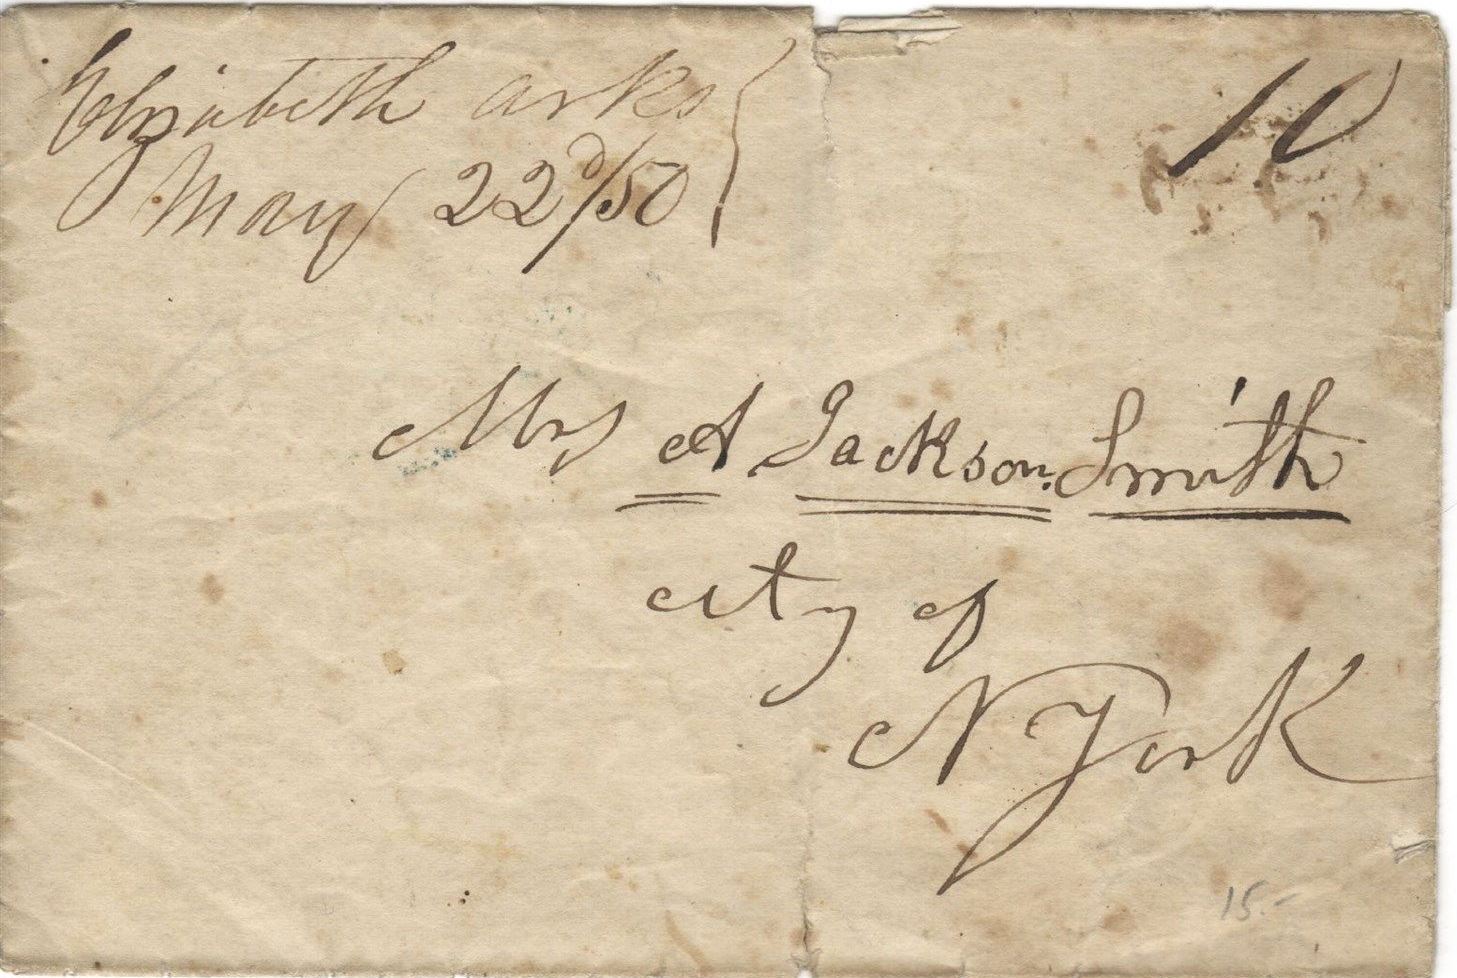 Elizabeth arks
May 22d/50
10
Mrs A Jackson Smith
city of
N York
15.-